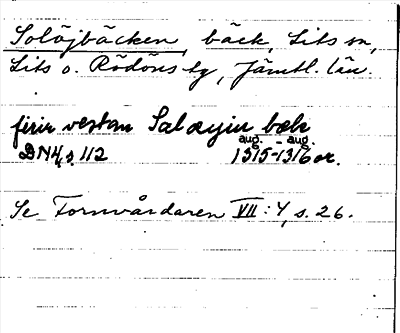 Solöjbäcken, bäck, Lits sn,
Lits o. Rödöns tg, Jämtl. län.
firir vestan Saløyiu bæk
aug. aug.
DN4, s. 112 1315-1316 or.
Se Fornvårdaren VII: 4, s. 26.